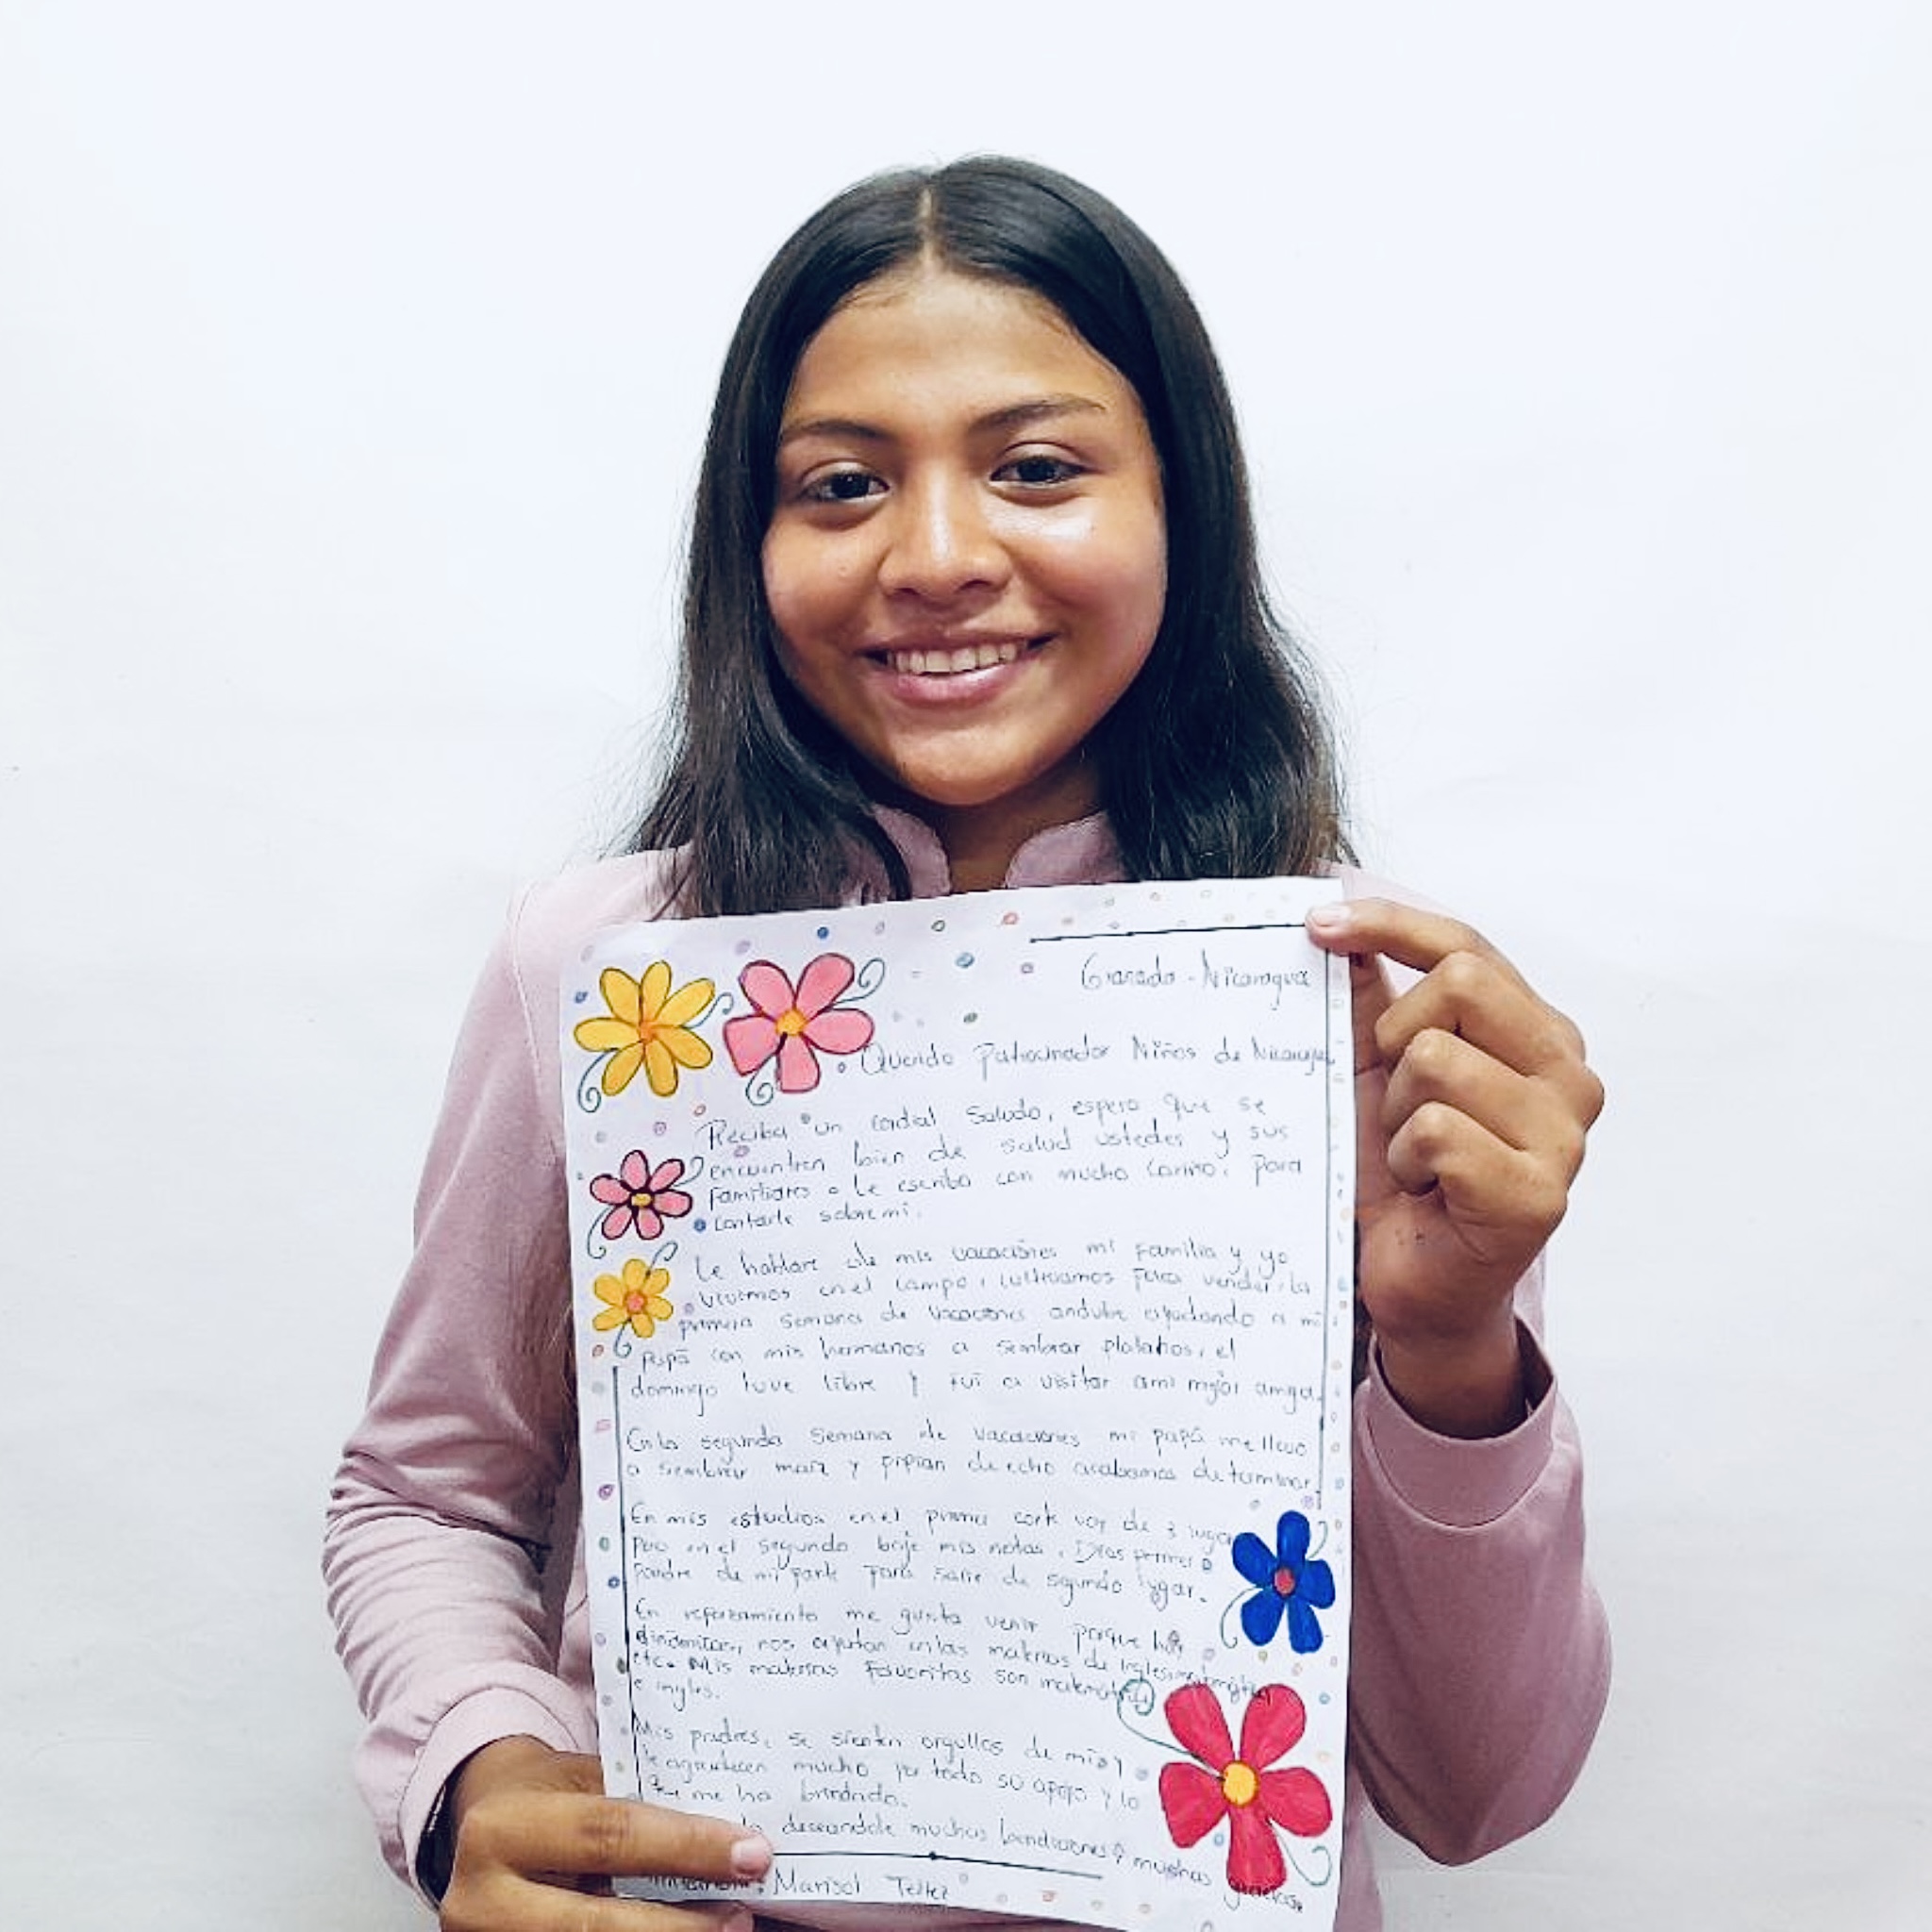 Granada - Nicaragua
Querido Patrocinador Niños de Nicaragua
Reciba un cordial saludo, espero que se
encuentren bien de salud ustedes y sus
familiares le escribo con mucho cariño, para
contarle sobre mi.
Le hablare de mis vacaciones mi familia y yo
vivimos en el campo, cultivamos para vender, la
primera semana de vacaciones anduve ayudando a mi
papá con mis hermanos a sembrar platanos, el
domingo tuve libre y fui a visitar ami mejor amiga.
En la segunda semana de vacaciones mi papá me llevo
a sembrar maiz y pipian de echo acabamos de terminar
En mis estudios en el primer corte voy de 3 lugar
pero en el segundo baje mis notas, Dios primero
pondre de mi parte para salir de segundo lugar.
En reforzamiento me gusta venir porque hay
dinamicas, nos ayudan en las materias de Ingles, matemática
etc. Mis materias favoritas son matemática
e ingles.
Mis padres, se sienten orgullos de mi y
le agradecen mucho por todo su apoyo y lo
que me ha brindado.
deseandole muchas bendiciones y muchas gracias
Marisol Tellez